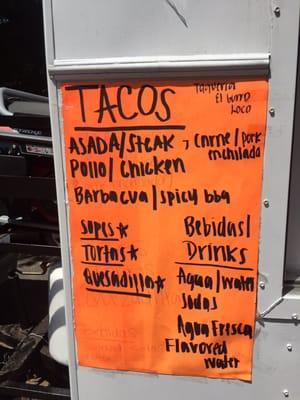 Taqueria
El burro
Loco
TACOS
ASADA/STEAK, Carne/Pork
enchilada
Pollo/Chicken
Barbacua/spicy bbq
Sopes*
Tortas*
Quesadilla*
Bebidas/
Drinks
Agua/water
Sodas
Agua Frisca
Flavored
water